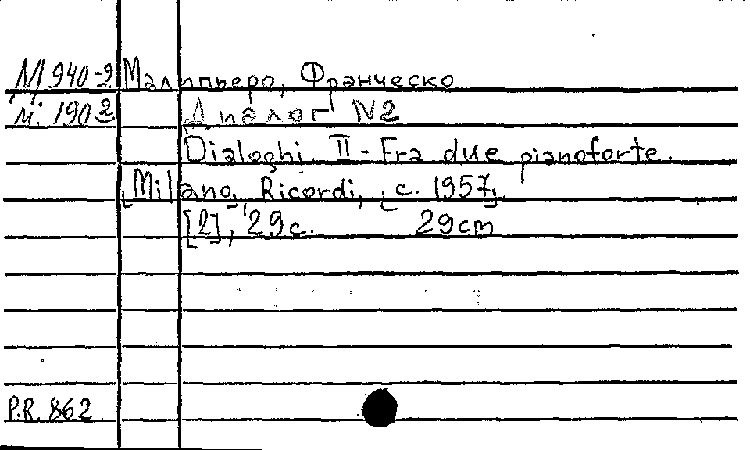 М 940-2 Малипьеро, Франческо
м. 190 2 Диалог N2
Dialoghi II - Fra due pianoforte.
[Milano, Ricordi, [c. 1957]
[2], 29 c. 29 cm
P.R. 862